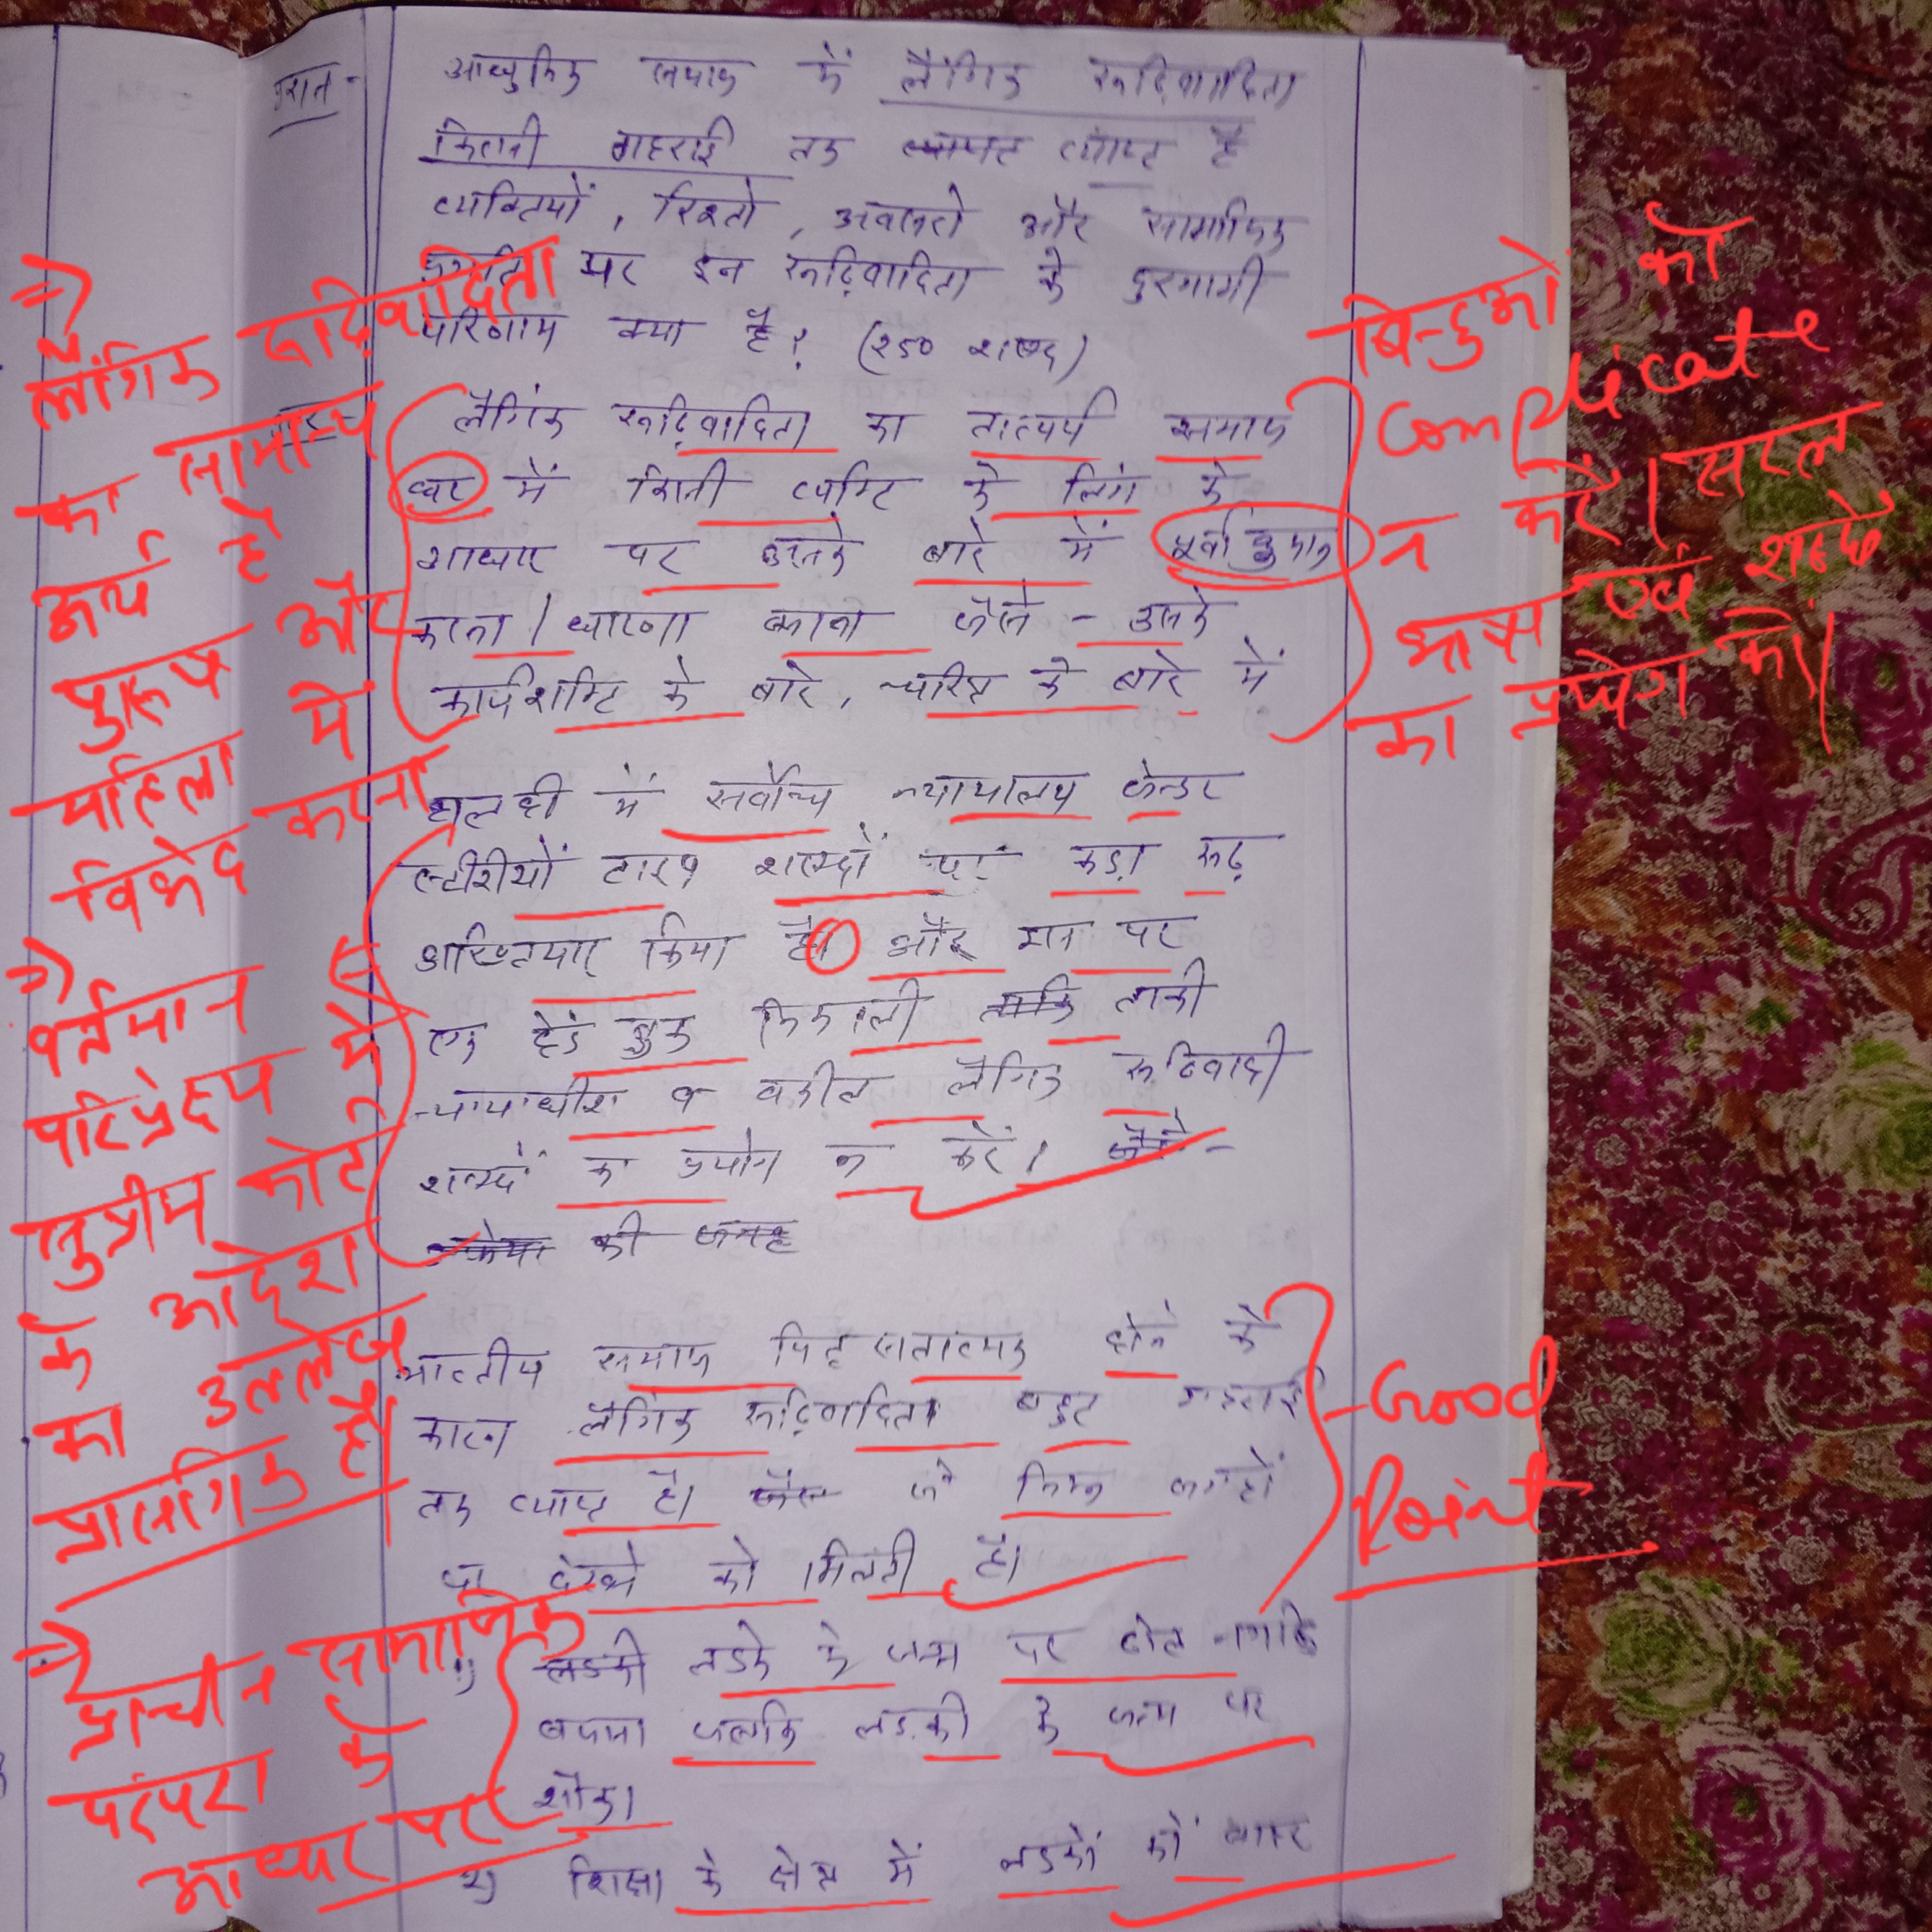 प्रश्न-
आधुनिक समाज में लैंगिक रूढ़िवादिता
कितनी गहराई तक व्याप्त है
व्यक्तियों, रिश्तो, अवसरो और सामाजिक
प्रगति पर इन रूढ़िवादिता के दुरगामी
परिणाम क्या है? (250 शब्द)
लैगिंक रूढ़िवादिता का तात्पर्य समाज
द्वारा में किसी व्यक्ति के लिंग के
आधार पर उसके बारे में पूर्वानुमान
करना / धारणा बनाना जैसे - उसके
कार्यशक्ति के बारे, चरित्र के बारे में
हाल ही में सर्वोच्च न्यायालय जेन्डर
स्टीरीयों टाइप शब्दों पर कड़ा रूढ़
अख्तियार किया है। और इस पर
एक हेंड बुक निकाली ताकि ताकी
न्यायाधीश व वकील लैगिक रूढिवादी
शब्दों का प्रयोग न करें। जैसे-
की जगह
भारतीय समाज पितृसतात्मक होने के
कारन लैगिक रूढ़िवादिता बहुत गहराई
तक व्याप्त है। जैसे जो निम्न जगहों
पर देखने को मिलती है।
1) लडकी लडके के जन्म पर ढोल नगाडे
बजना जबकि लडकी के जन्म पर
शोक।
2) शिक्षा के क्षेत्र में लडकों को बाहर
⇒ लैंगिक रूढ़िवादिता
का सामान्य
अर्थ है
पुरूष और
महिला में
विभेद करना
⇒ वर्तमान
परिप्रेक्ष्य में
सुप्रीम कोर्ट
के आदेश
का उल्लेख
प्रासंगिक है।
⇒ प्राचीन सामाजिक
परंपरा के
आधार पर
बिन्दुओं को
Complicate
न करें। सरल
भाषा एवं शब्दों
का प्रयोग करें।
- Good
Point